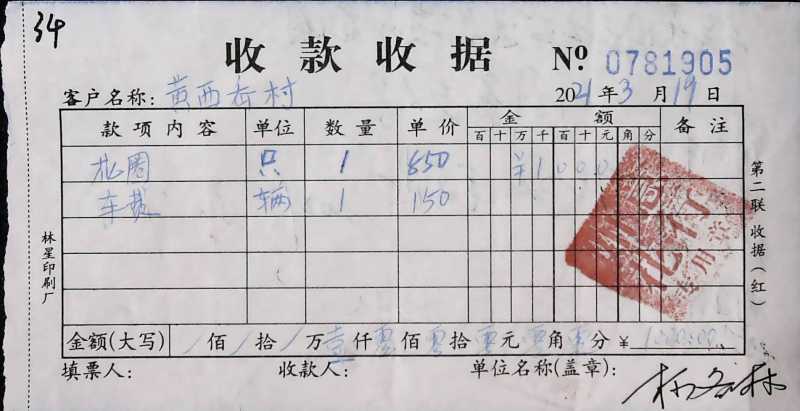 34
收款收据 Nº 0781905
客户名称: 黄西村 2021年3月19日
款项内容 单位 数量 单价 金额 备注
百 十 万 千 百 十 元 角 分
花圈 只 1 850 ¥1000
车费 辆 1 150
金额(大写) / 佰 / 拾 / 万 壹 仟 零 佰 零 拾 零 元 零 角 零 分 ¥ 1000.00
填票人: 收款人: 单位名称(盖章):
林星印刷厂
第二联 收据(红)